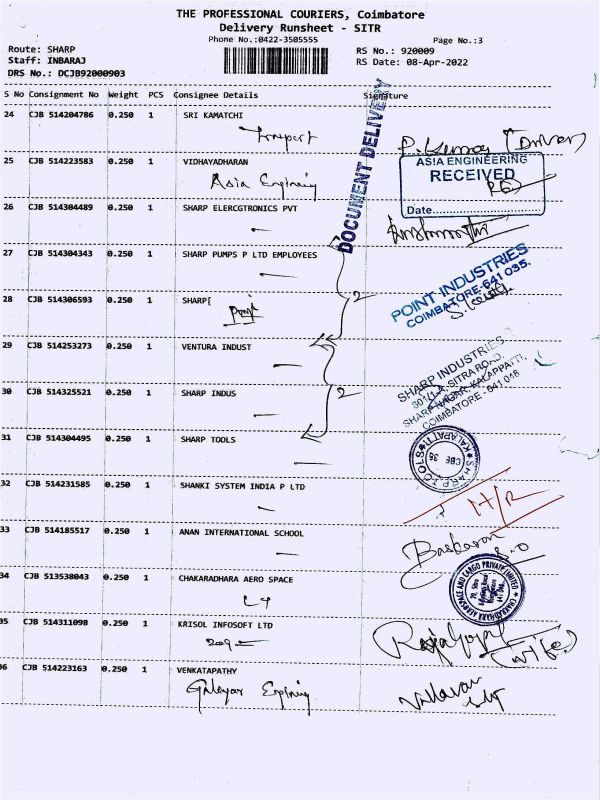 THE PROFESSIONAL COURIERS, Coimbatore
Delivery Runsheet - SITR
Phone No.:0422-3505555
Page No.:3
Route: SHARP
RS No.: 920009
Staff: INBARAJ
RS Date: 08-Apr-2022
DRS No.: DCJB92000903
S No Consignment No Weight PCS Consignee Details Signature
DOCUMENT DELIVERY
24 CJB 514204786 0.250 1 SRI KAMATCHI
Transport
P. Kumar (Driver)
25 CJB 514223583 0.250 1 VIDHAYADHARAN
Asia
ASIA ENGINEERING
RECEIVED
Date
26 CJB 514304489 0.250 1 SHARP ELERCGTRONICS PVT
27 CJB 514304343 0.250 1 SHARP PUMPS P LTD EMPLOYEES
28 CJB 514306593 0.250 1 SHARP[
2
POINT INDUSTRIES
COIMBATORE-641 035.
29 CJB 514253273 0.250 1 VENTURA INDUST
30 CJB 514325521 0.250 1 SHARP INDUS
2
SHARP INDUSTRIES
SITRA ROAD,
SHARP NAGAR, KALAPPATTI,
COIMBATORE - 641 048
31 CJB 514304495 0.250 1 SHARP TOOLS
SHARP TOOLS
KALAPATTI
CBE 35
32 CJB 514231585 0.250 1 SHANKI SYSTEM INDIA P LTD
H/R
33 CJB 514185517 0.250 1 ANAN INTERNATIONAL SCHOOL
Baskaran
S.O
34 CJB 513538043 0.250 1 CHAKARADHARA AERO SPACE
CHAKARADHARA AEROSPACE AND CARGO PRIVATE LIMITED
35 CJB 514311098 0.250 1 KRISOL INFOSOFT LTD
Rajagopal
(Wife)
36 CJB 514223163 0.250 1 VENKATAPATHY